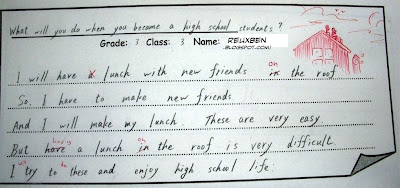 What will you do when you become a high school students?
Grade: 3 Class: 3 Name: REUXBEN
BLOGSPOT.COM
on
I will have a lunch with new friends in the roof
So, I have to make new friends.
And I will make my lunch. These are very easy
having on
But have a lunch in the roof is very difficult.
will do
I try to these and enjoy high school life.